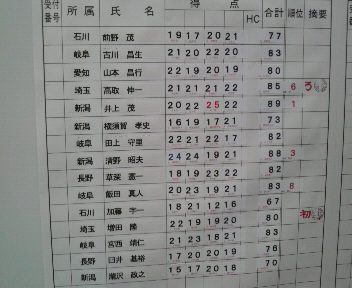 受付番号 所属 氏名 得点 HC 合計 順位 摘要
石川 前野 茂 19 17 20 21 77
岐阜 古川 昌生 21 20 22 20 83
愛知 山本 昌行 22 19 20 19 80
埼玉 高取 伸一 21 21 22 21 85 6
新潟 井上 茂 20 22 25 22 89 1
新潟 横須賀 孝史 16 19 17 21 73
岐阜 田上 守里 22 21 22 17 82
新潟 清野 昭夫 24 24 19 21 88 3
長野 草深 憲一 18 19 23 22 82
岐阜 飯田 真人 20 23 19 21 83 8
石川 加藤 宇一 18 21 12 16 67
埼玉 増田 隆 22 19 19 20 80 初
岐阜 宮西 靖仁 21 23 18 21 83
長野 臼井 基裕 17 20 20 19 76
新潟 瀧沢 政之 15 17 20 18 70